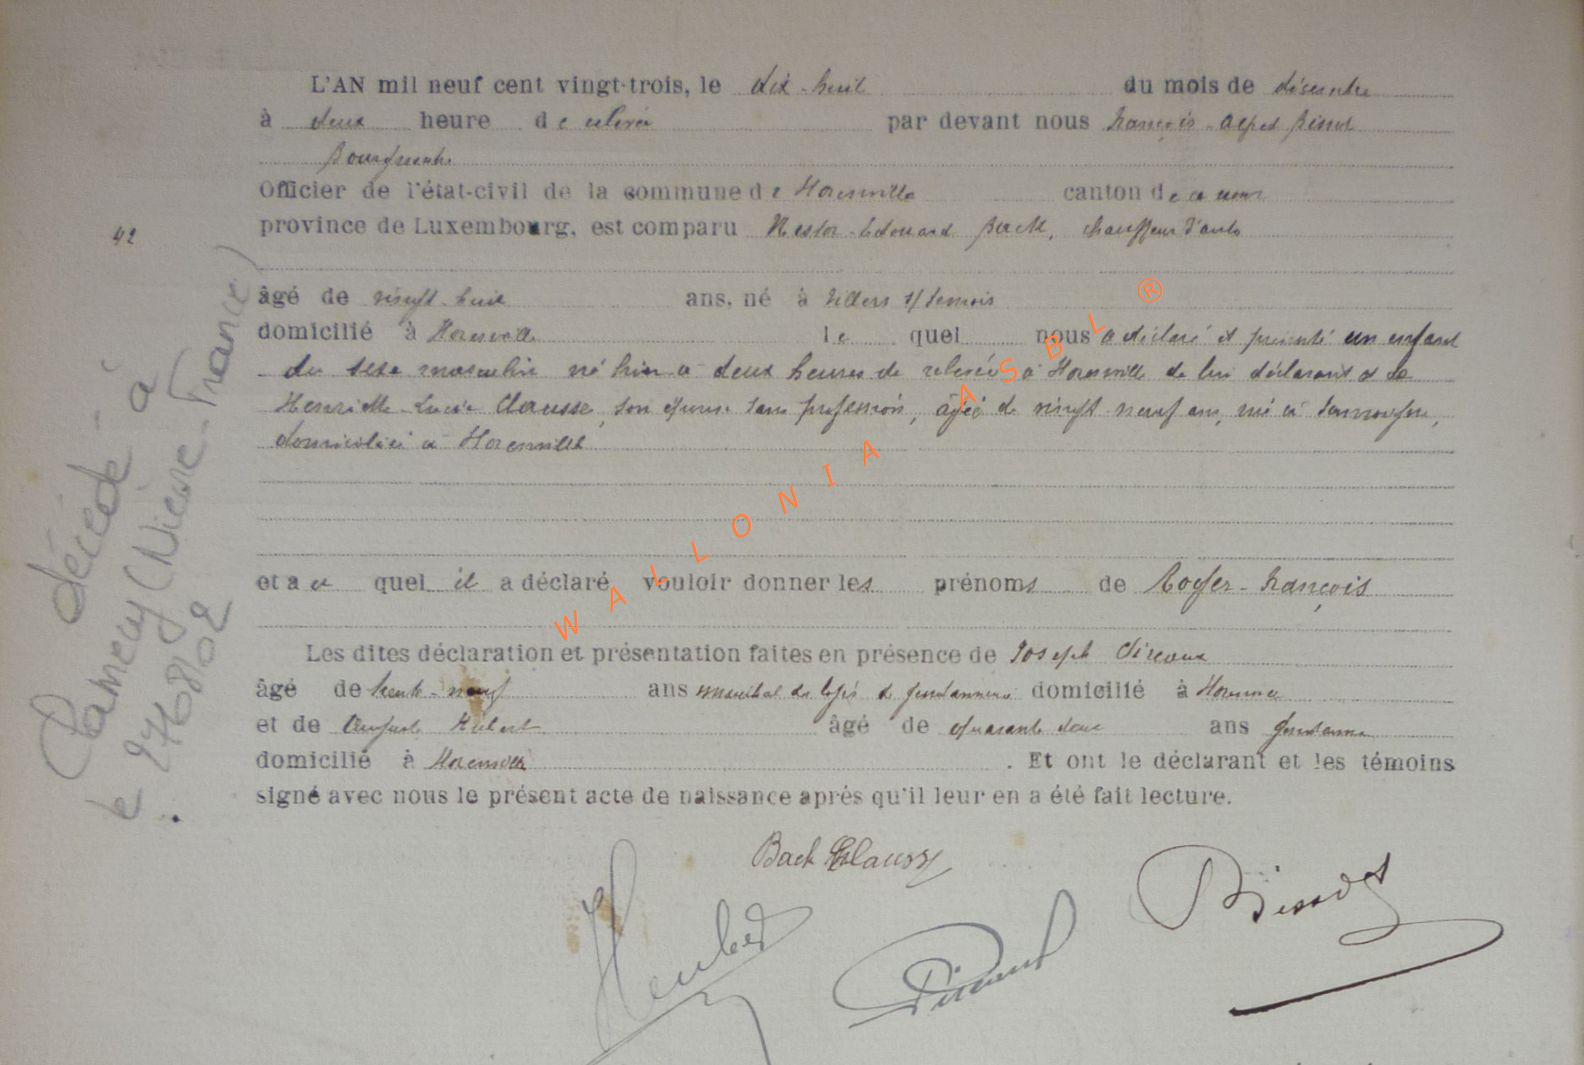 L'AN mil neuf cent vingt-trois, le dix-huit du mois de décembre
à deux heure de relevée par devant nous François-Alfred Bissot
Bourgmestre
Officier de l'état-civil de la commune de Florenville canton de
province de Luxembourg, est comparu Nestor-Edouard Back, chauffeur d'auto
42
âgé de vingt-huit ans, né à Villers s/Semois
domicilié à Florenville lequel nous a déclaré et présenté un enfant
du sexe masculin né hier à deux heures de relevée à Florenville de lui déclarant et de
Henriette-Lucie Clausse, son épouse sans profession, âgée de vingt neuf ans, née à
domiciliée à Florenville
et auquel il a déclaré vouloir donner les prénoms de Roger-François
Les dites déclaration et présentation faites en présence de Joseph
âgé de trente-neuf ans maréchal des logis de gendarmerie domicilié à Florenville
et de Auguste Hubert âgé de quarante deux ans gendarme
domicilié à Florenville . Et ont le déclarant et les témoins
signé avec nous le présent acte de naissance après qu'il leur en a été fait lecture.
Back Clausse
Bissot
décédé à
(Nièvre-France)
le
WALLONIA ASBL ®